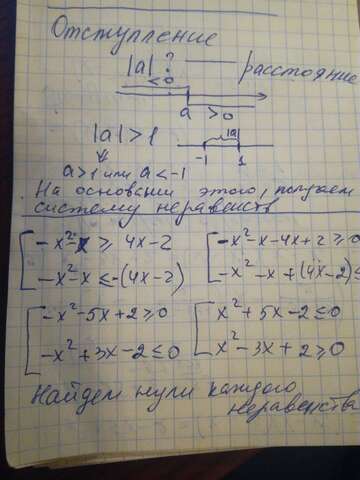 Отступление
|a| ? — расстояние
< 0
a > 0
|a| > 1
|a|
-1 1
a > 1 или a < -1
На основании этого, получаем
систему неравенств
-x² - x ≥ 4x - 2
-x² - x - 4x + 2 ≥ 0
-x² - x ≤ -(4x - 2)
-x² - x + (4x - 2) ≤
-x² - 5x + 2 ≥ 0
x² + 5x - 2 ≤ 0
-x² + 3x - 2 ≤ 0
x² - 3x + 2 ≥ 0
Найдем нули каждого
неравенства